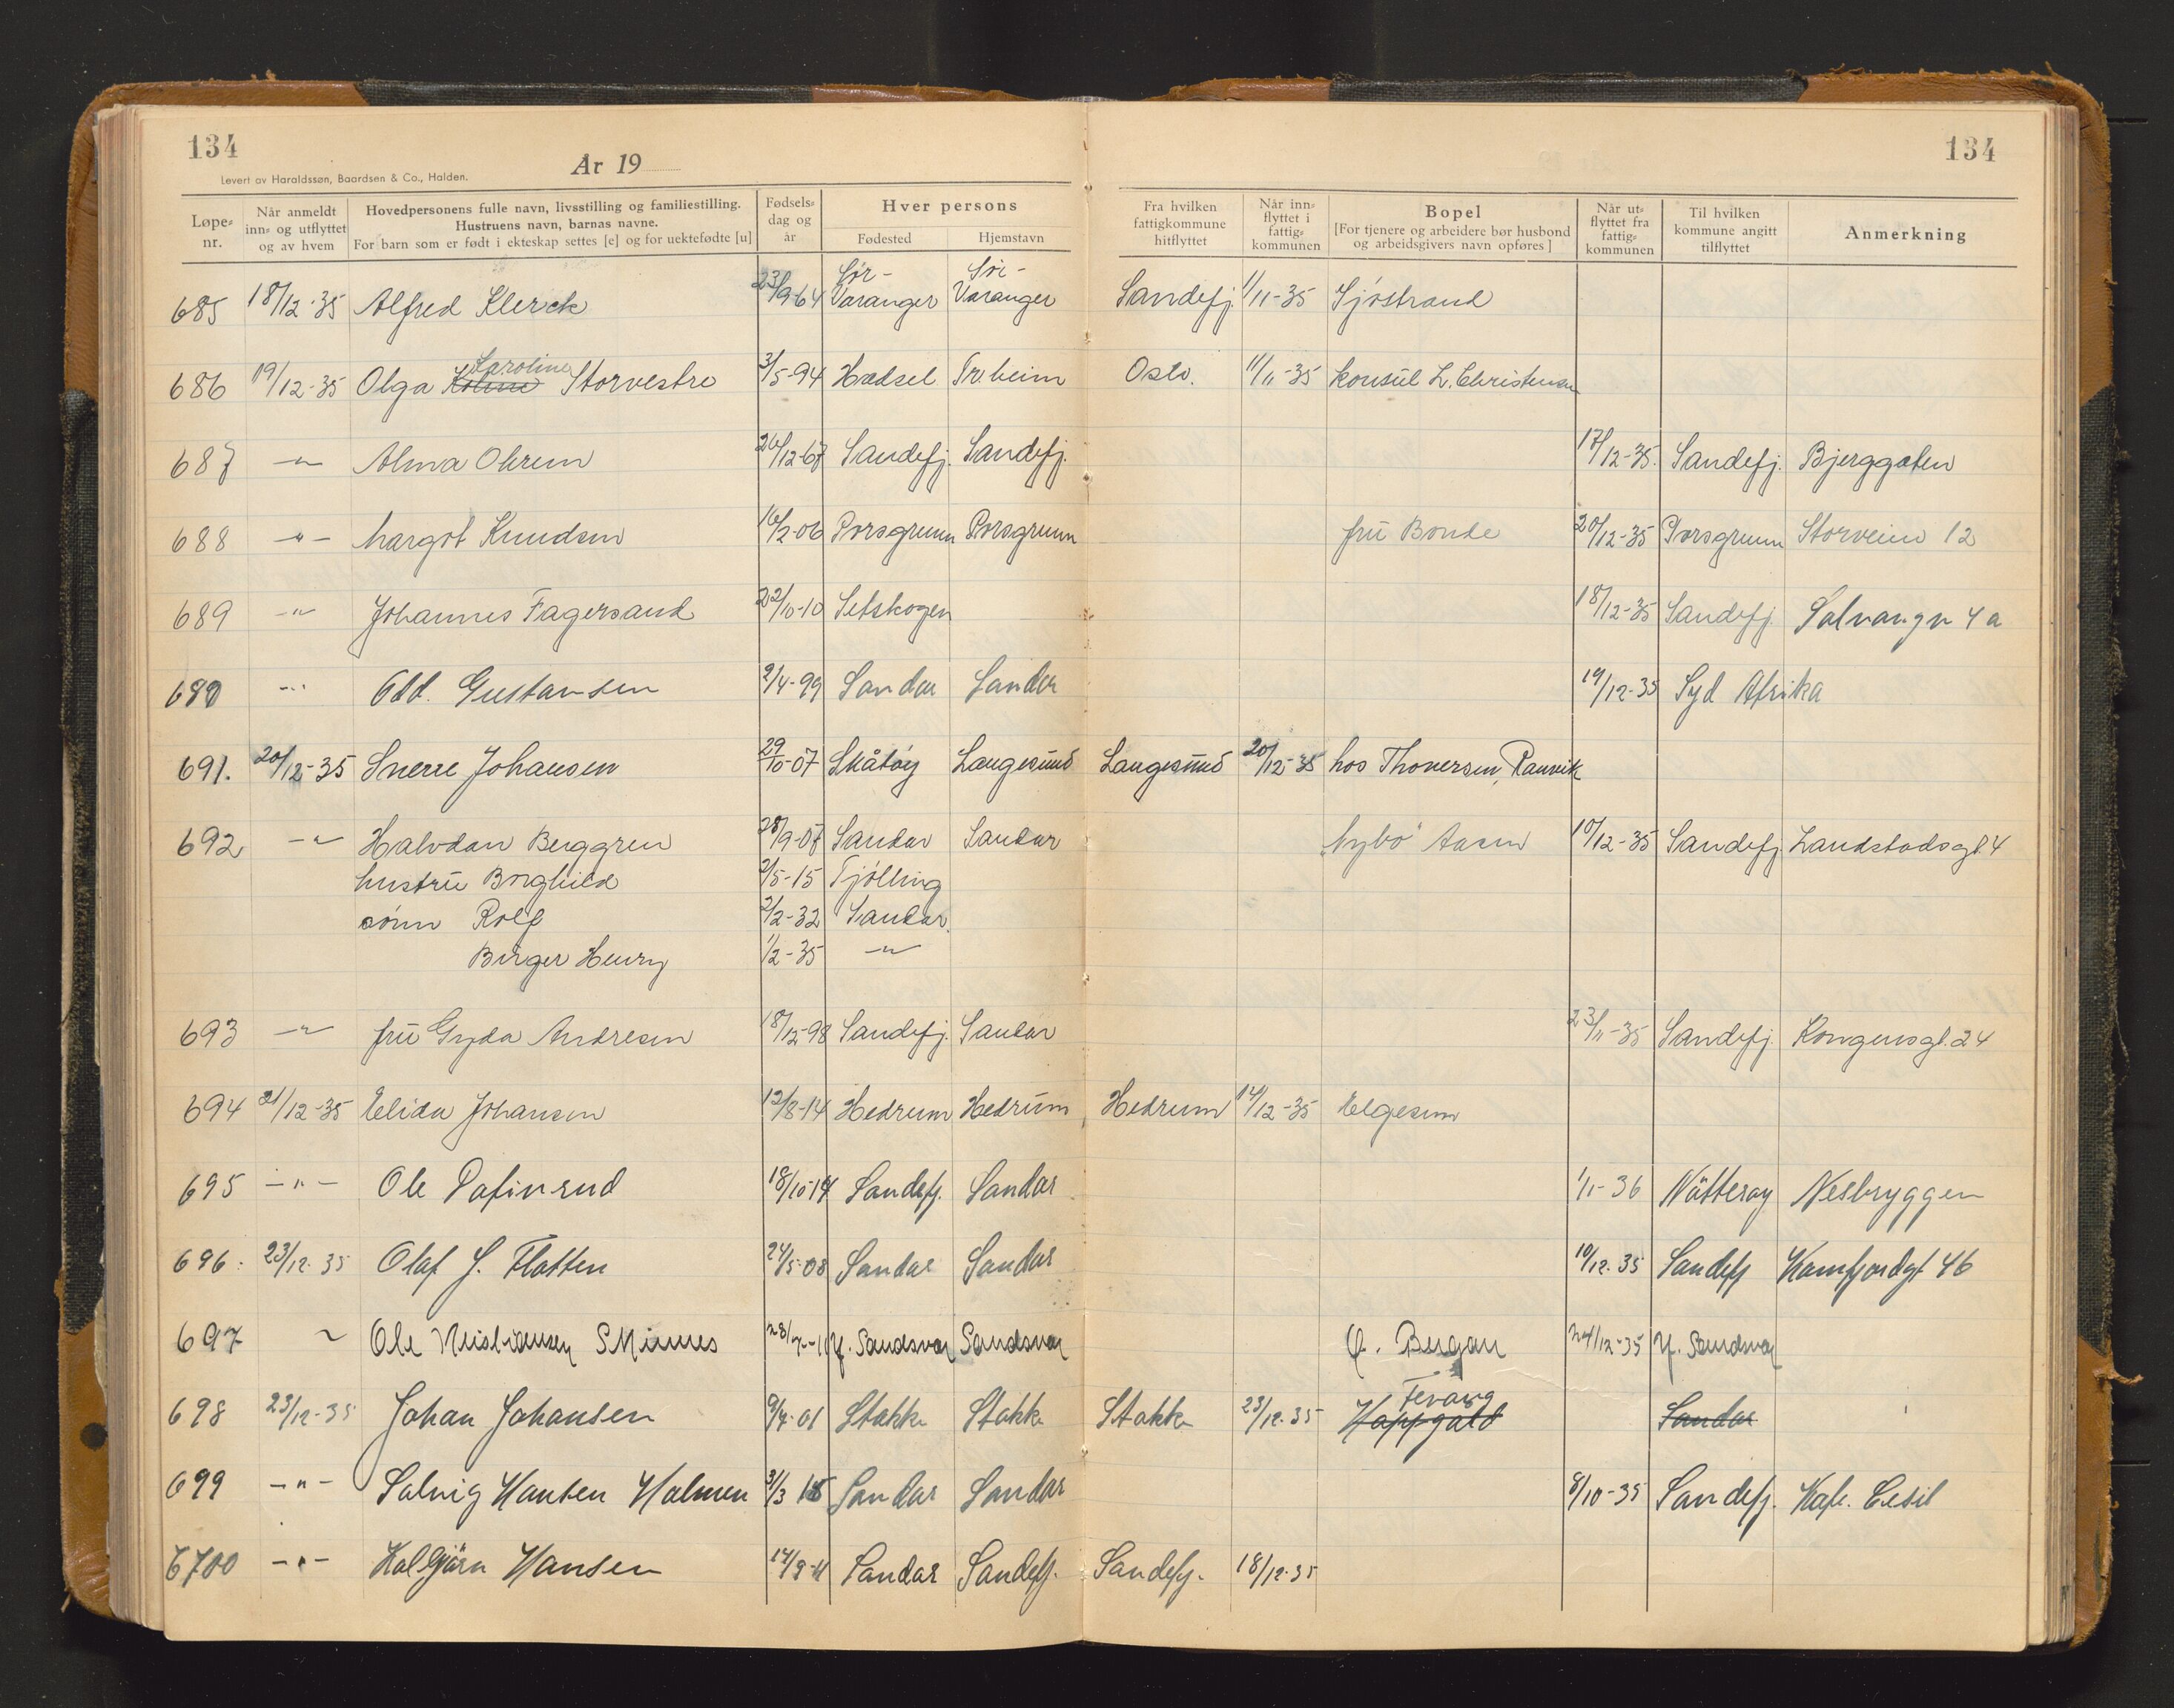 134
År 19
134
Levert av Haraldssøn, Baardsen & Co., Halden.
Løpe-nr. Når anmeldt inn- og utflyttet og av hvem Hovedpersonens fulle navn, livsstilling og familiestilling. Hustruens navn, barnas navne. For barn som er født i ekteskap settes [e] og for uektefødte [u] Fødsels-dag og år Hver persons Fødested Hjemstavn Fra hvilken fattigkommune hitflyttet Når inn-flyttet i fattig-kommunen Bopel [For tjenere og arbeidere bør husbond og arbeidsgivers navn opføres] Når ut-flyttet fra fattig-kommunen Til hvilken kommune angitt tilflyttet Anmerkning
685 18/12-35 Alfred Klerck 23/9-64 Sør-Varanger Sør-Varanger Sandefj. 1/11-35 Sjøstrand
686 19/12-35 Olga Karoline Storvestre 3/5-94 Hadsel Tr.heim Oslo. 11/11-35 konsul L. Christensen
687 -"- Alma Ohren 26/12-67 Sandefj. Sandefj. 17/12-35. Sandefj. Bjerggaten
688 -"- Margot Knudsen 16/2-06 Porsgrunn Porsgrunn fru Bonde 20/12-35 Porsgrunn Storveien 12
689 -"- Johannes Fagersand 22/10-10 Setskogen 18/12-35 Sandefj. Solvangv 4a
690 -"- Odd. Gustavsen 2/4-99 Sandar Sandar 19/12-35 Syd Afrika
691. 20/12-35 Sverre Johansen 29/10-07 Skåtøy Langesund Langesund 20/12-35 hos Thoversen, Ranvik
692 -"- Halvdan Berggren 28/9-08 Sandar Sandar Nybo Aasen 10/12-35 Sandefj. Landstadsgt. 4
hustru Borghild 2/5-15 Tjølling
sønn Rolf 2/2-32 Sandar.
Birger Henry 1/2-35 -"-
693 -"- fru Gyda Andresen 18/12-98 Sandefj. Sandar 23/11-35 Sandefj. Kongensgt. 24
694 21/12-35 Elida Johansen 12/8-14 Hedrum Hedrum Hedrum 14/12-35 Elgesem
695 -"- Ole Pafinrud 18/10-14 Sandefj. Sandar 1/1-36 Nøtterøy Nesbryggen
696. 23/12-35 Olaf J. Flatten 24/5-08 Sandar Sandar 10/12-35 Sandefj Kamfjordgt 46
697 " Ole Kristiansen Skinnes 28/7-11 Y. Sandsvær Sandsvær O. Bergan 24/12-35 Y. Sandsvær
698 23/12-35 Johan Johansen 9/4-01 Stokke Stokke Stokke 23/12-35 Happgald Fevang Sandar
699 -"- Solveig Hansen Holmen 31/3 15 Sandar Sandar 8/10-35 Sandefj. Kafe. Cecil
6700 -"- Hallbjørn Hansen 14/9-11 Sandar Sandefj. Sandefj. 18/12-35